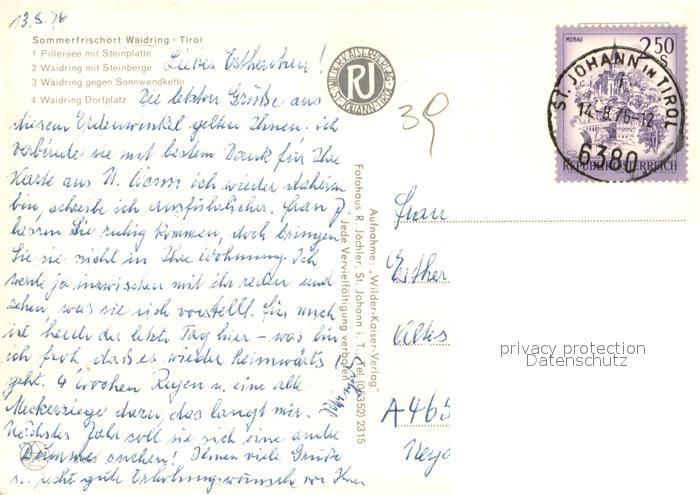 13.8.76
Sommerfrischort Waidring - Tirol
1 Pillersee mit Steinplatte
2 Waidring mit Steinberge
3 Waidring gegen Sonnwendkette
4 Waidring Dorfplatz
Liebes Estherchen!
Die letzten Grüße aus
diesem Erdenwinkel gelten Ihnen. ich
verbinde sie mit bestem Dank für Ihre
Karte aus N. Wenn ich wieder daheim
bin, schreibe ich ausführlicher. Frau J.
lassen Sie ruhig kommen, doch bringen
Sie sie nicht in Ihre Wohnung. Ich
werde ja inzwischen mit ihr reden und
sehen, was sie sich vorstellt. Für mich
ist heute der letzte Tag hier – was bin
ich froh, daß es wieder heimwärts
geht. 4 Wochen Regen u. eine alte
Meckerziege dazu, das langt mir.
Nächstes Jahr soll sie sich eine andre
Dumme suchen! Ihnen viele Grüße
u. recht gute Erholungswünsche von Ihrer
WILDER-KAISER-VERLAG
ST. JOHANN-TIROL
RJ
39
Aufnahme: „Wilder-Kaiser-Verlag"
Fotohaus R. Jöchler, St. Johann i. T., Tel. (05352) 2315
Jede Vervielfältigung verboten
MURAU
2.50
S
REPUBLIK ÖSTERREICH
ST. JOHANN in TIROL
14.-8.76-12
6380
Frau
Esther
Altes
A 465
privacy protection
Datenschutz